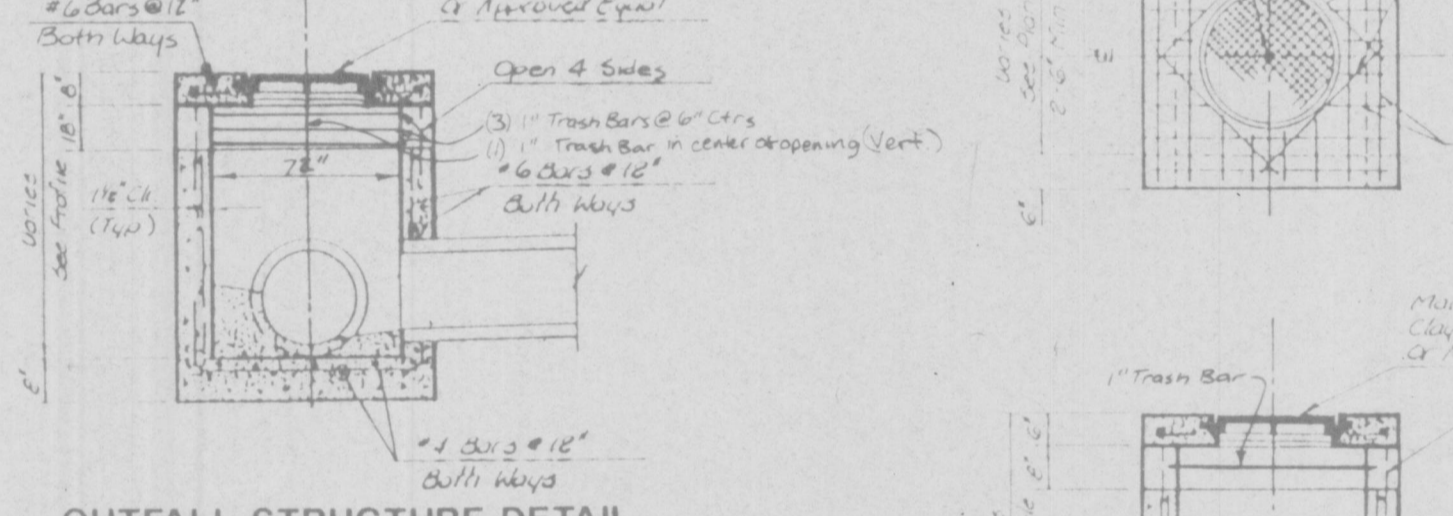 #6 Bars @ 12"
Both Ways
Or Approved Equal
Open 4 Sides
(3) 1" Trash Bars @ 6" Ctrs
(1) 1" Trash Bar in center of opening (Vert.)
#6 Bars @ 12"
Both Ways
72"
18" 8"
Varies
See Profile
(Typ)
8"
Bars @ 12"
Both Ways
OUTFALL STRUCTURE DETAIL
Varies
See Plan
2'-6" Min
6"
1" Trash Bar
8" 6"
Clay
Or